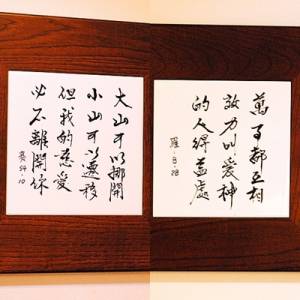 大山可以挪開
小山可以遷移
但我的慈愛
必不離開你
賽·54·10
萬事都互相
效力叫愛神
的人得益處
羅·8·28